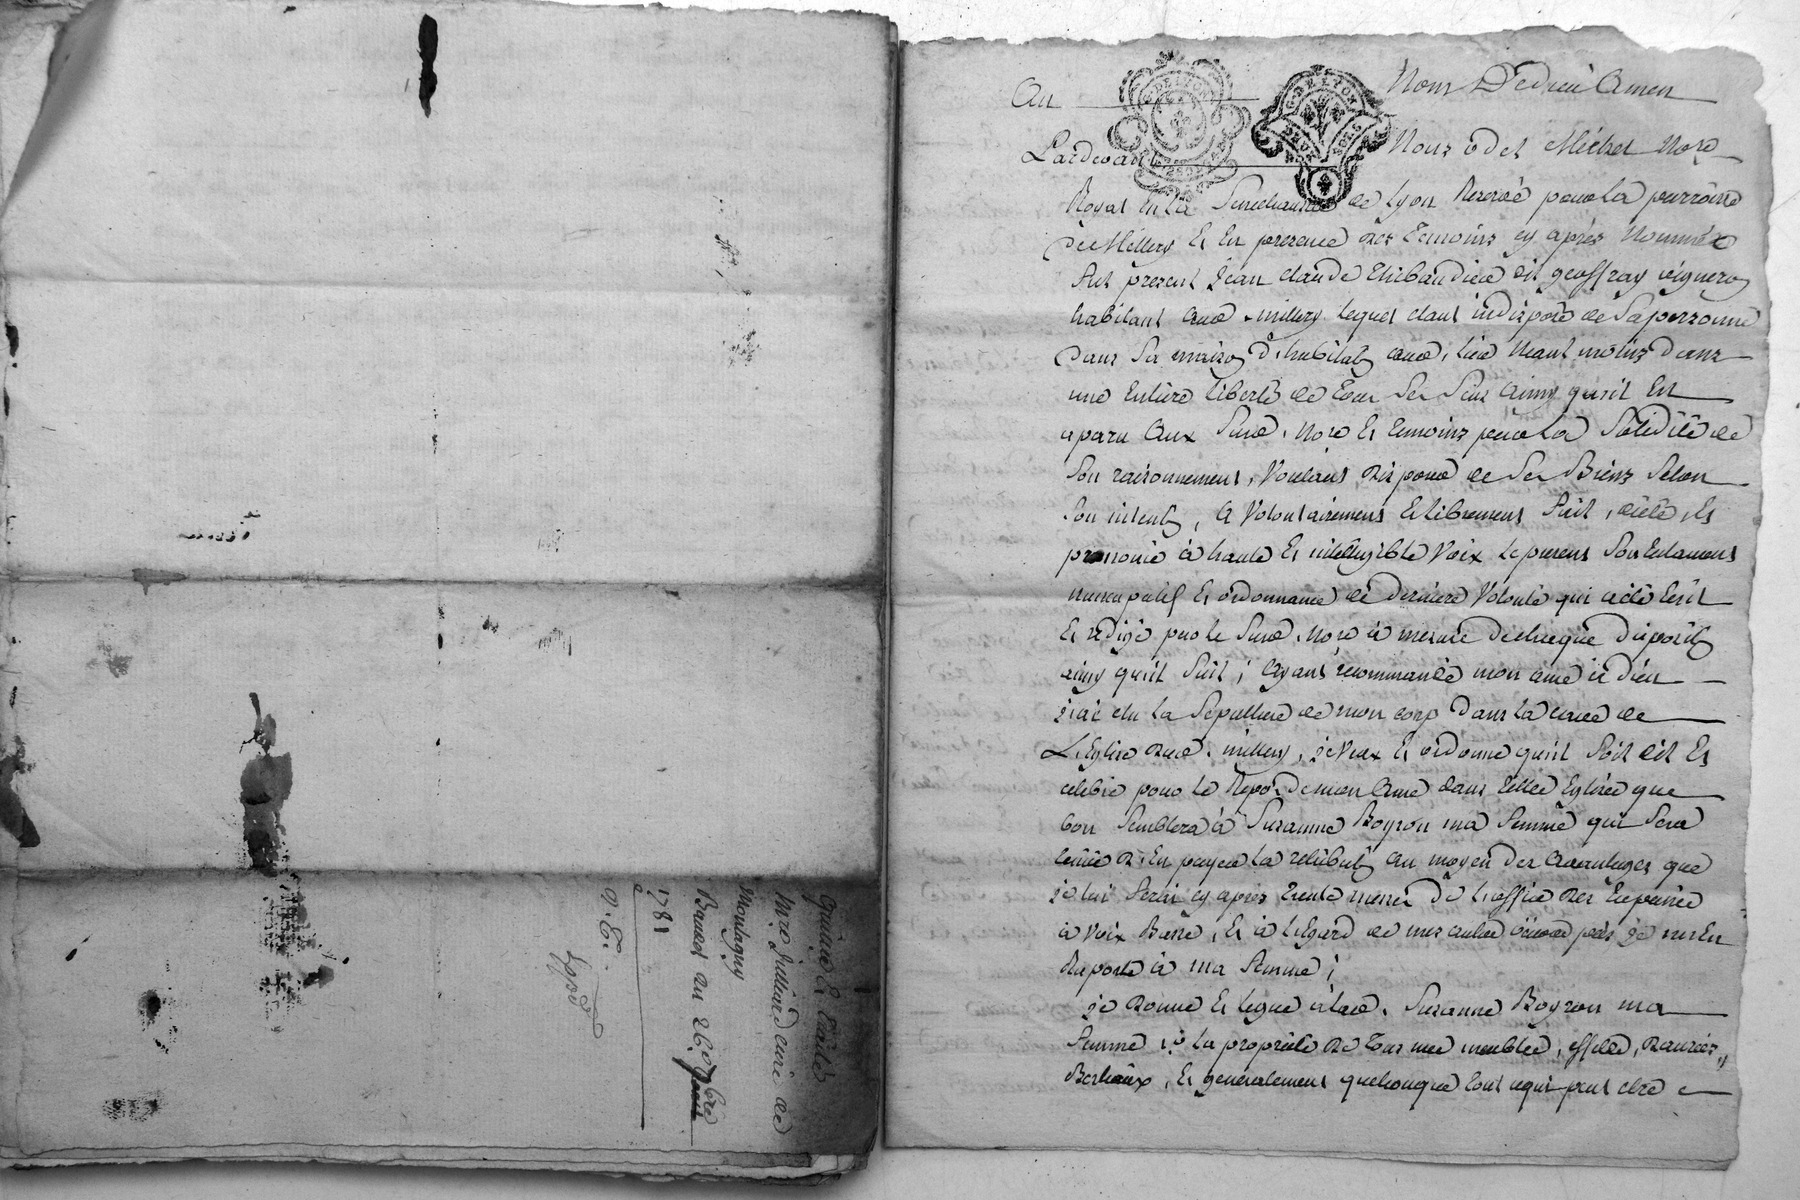 quittance
Mre Julliard curé de
Montagny
1781
Au Nom De dieu Amen
G. DE LYON
G. DE LYON
DEUX SOLS
Pardevant Nous Odet Michel Nore
Royal en la Senechaussée de Lyon Reservé pour la parroisse
de Millery Et En presence des temoins cy après Nommés
fut present Jean claude thibaudier dit geoffray vigneron
habitant aud. millery lequel étant indisposé de sa personne
dans sa maison d'habitaôn aud. lieu Neant moins dans
une Entière liberté de tous ses sens ainsy qu'il Est
aparu Aux susd. Nore Et temoins par la solidité de
son raisonnement, Voulant disposer de ses Biens selon
son intentôn, A Volontairement Et librement fait, dicté, Et
prononcé à haute Et intelligible Voix le present son testament
nuncupatif Et ordonnance de derniere Volonté qui a été Ecrit
Et redigé par le susd. Nore à mesure de chaque dispositôn
ainsy qu'il suit; Ayant recommandé mon ame à dieu
j'ai élu la sepulture de mon corp dans la cave de
L'Eglise dud. millery, je Veux Et ordonne qu'il soit dit Et
celebré pour le Repos de mon Ame dans telle Eglise que
bon semblera à Suzanne Boyron ma femme qui sera
tenüe d'En payer la retributôn au moyen des avantages que
je lui ferai cy après, trente messes de l'office des trépassés
à voix Basse, Et à l'Egard de mes autres œuvres pies je m'En
Raporte à ma femme;
je donne Et legue à lad. Suzanne Boyron ma
femme 1° la propriété de tous mes meubles, effets, danrées,
Bestiaux, Et generalement quelconque tout ce qui peut etre